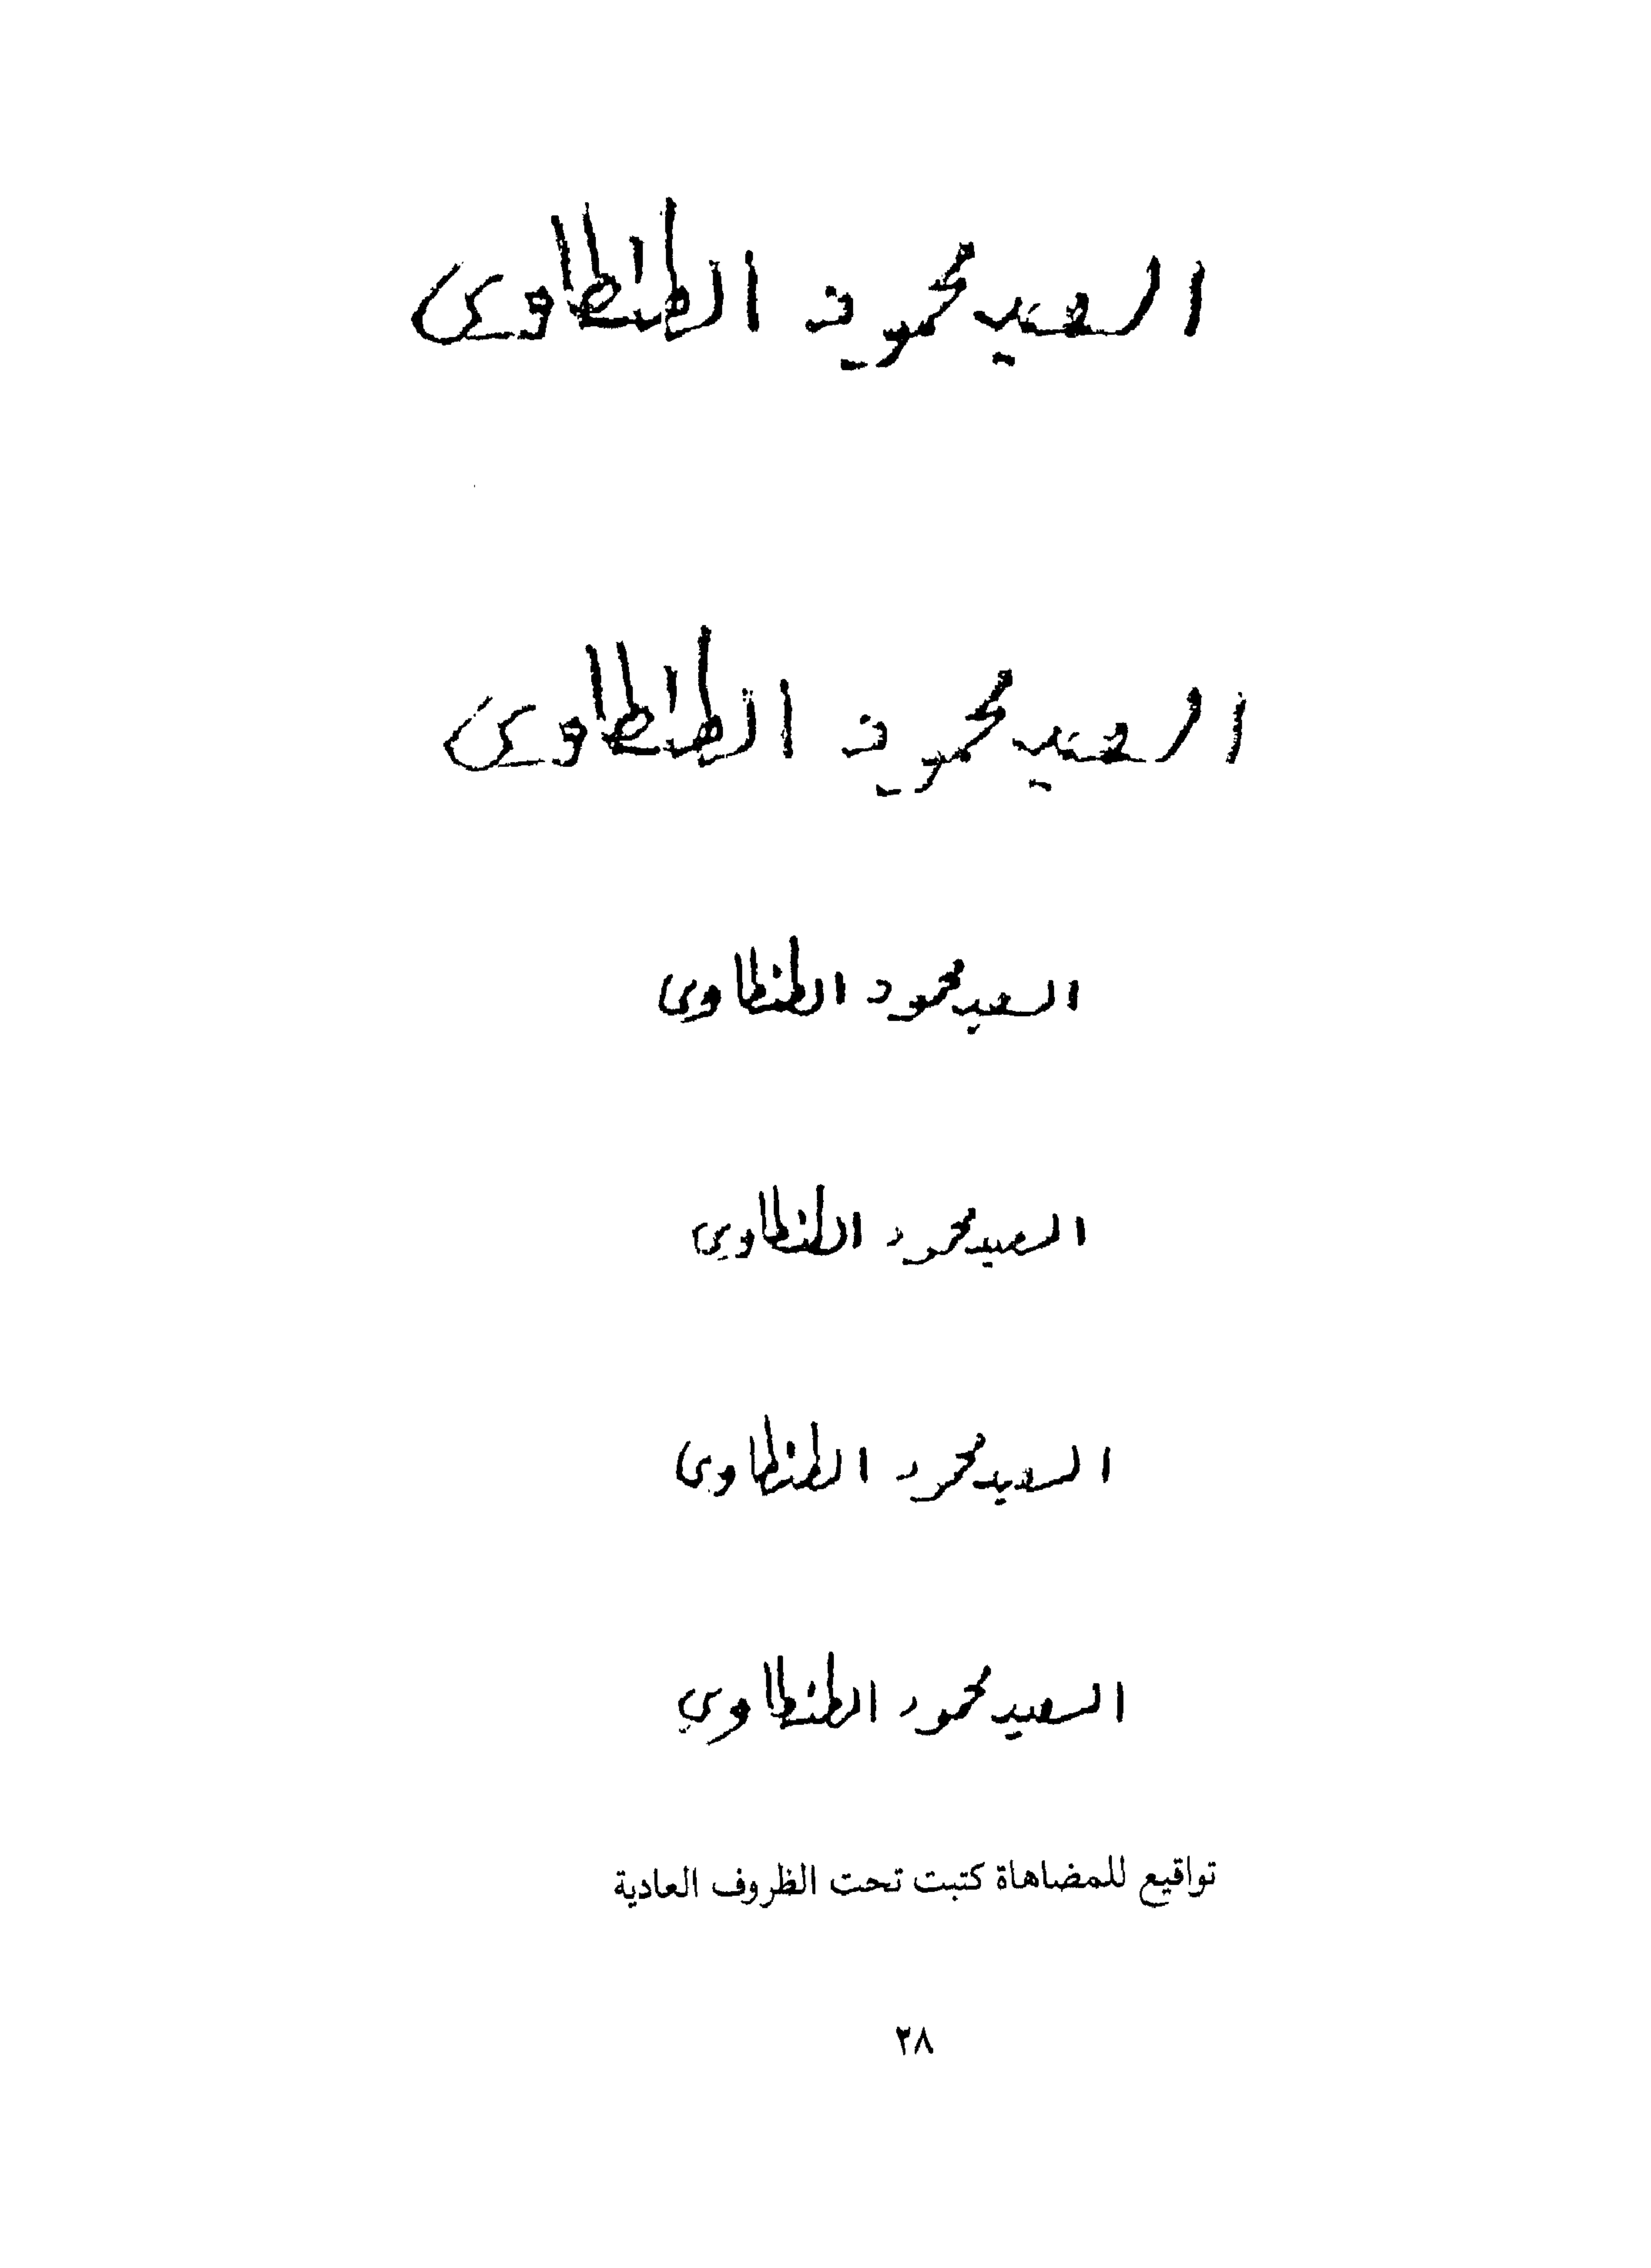 السعيد محمود الطنطاوى
السعيد محمود الطنطاوى
السعيد محمود الطنطاوى
السعيد محمود الطنطاوى
السعيد محمود الطنطاوى
السعيد محمود الطنطاوى
تواقيع للمضاهاة كتبت تحت الظروف العادية
٢٨